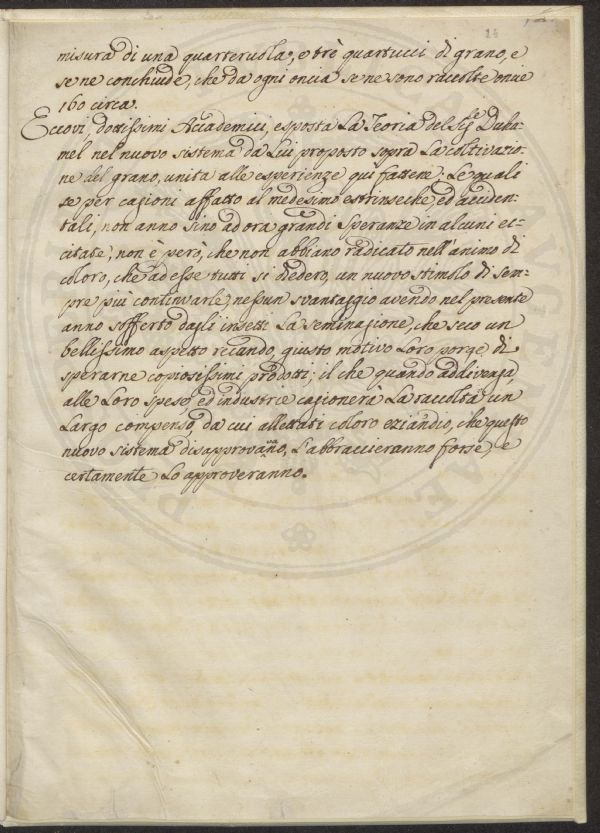 misura di una quarteruola, e trè quartucci di grano, e
se ne conchiude, che da ogni oncia se ne sono raccolte oncie
160 circa.
Eccovi, dottissimi Accademici, esposta La Teoria del Sig.re Duha-
mel nel nuovo sistema da Lui proposto sopra La coltivazio-
ne del grano, unita alle esperienze quì fattene: Le quali
se per cagioni affatto al medesimo estrinseche ed acciden-
tali, non anno sino ad ora grandi speranze in alcuni ec-
citate, non è però, che non abbiano radicato nell'animo di
coloro, che ad esse tutti si diedero, un nuovo stimolo di sem-
pre più continuarle, nessun svantaggio avendo nel presente
anno sofferto dagli insetti La seminagione, che seco un
bellissimo aspetto recando, giusto motivo Loro porge di
sperarne copiosissimi prodotti; il che quando addivenga,
alle Loro spese ed industrie cagionerà La raccolta un
Largo compenso, da cui allettati coloro eziandio, che questo
nuovo sistema disapprovano, L'abbraccieranno forse, e
certamente Lo approveranno.